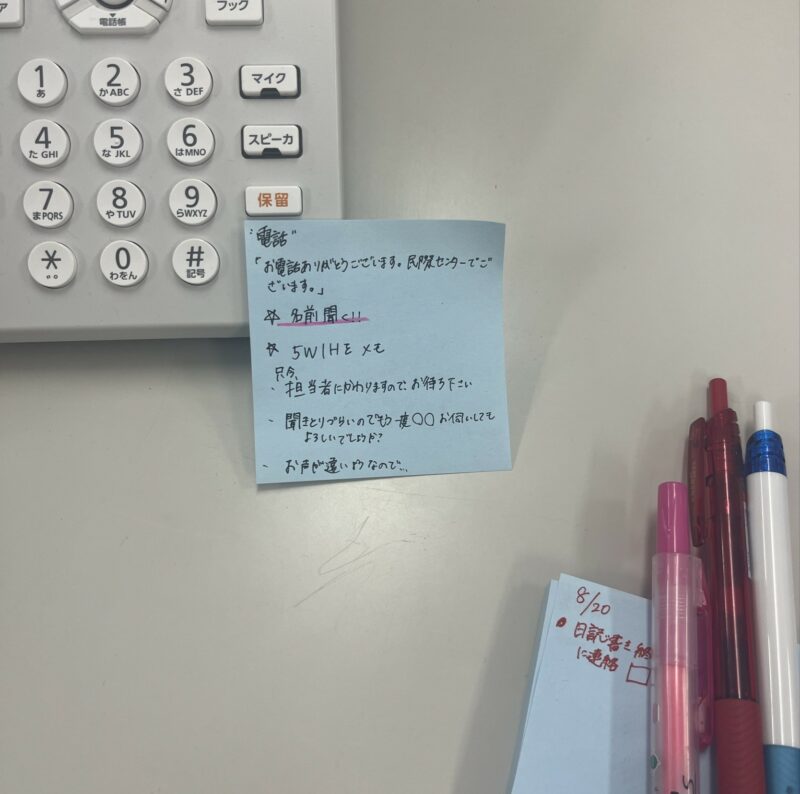 ア
電話帳
フック
1
あ
2
かABC
3
さ DEF
マイク
4
た GHI
5
な JKL
6
はMNO
スピーカ
7
まPQRS
8
やTUV
9
らWXYZ
保留
*
0
わをん
#
記号
"電話"
「お電話ありがとうございます。民際センターでご
ざいます。」
☆ 名前聞く!!
☆ 5W1Hをメモ
只今、
・担当者にかわりますので、お待ち下さい
・聞きとりづらいのでもう一度〇〇お伺いしても
よろしいでしょうか?
・お声が遠いようなので...
8/20
日誌書き
に連絡 □